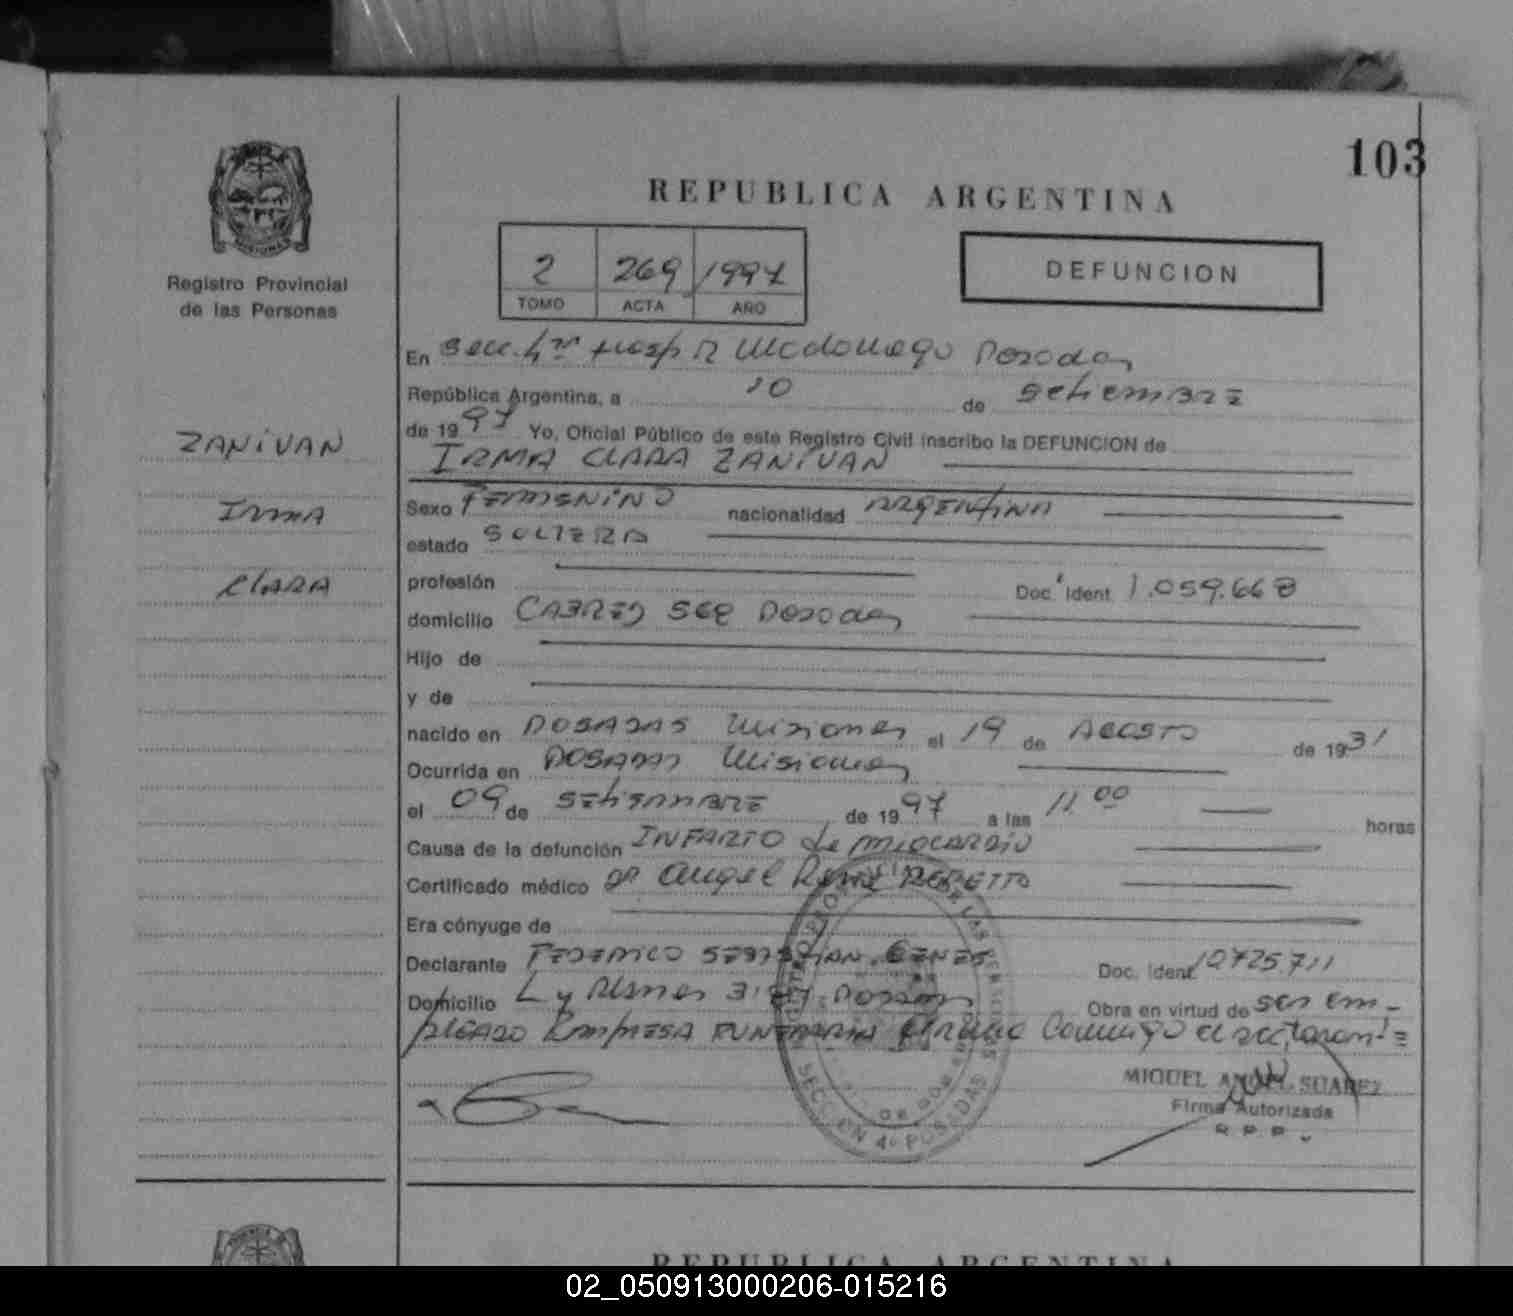 103
REPUBLICA ARGENTINA
2 269 1997
TOMO ACTA AÑO
DEFUNCION
Registro Provincial
de las Personas
ZANIVAN
IRMA
CLARA
En Secc. 4ta Hosp R Posadas
República Argentina, a 10 de Setiembre
de 1997 Yo, Oficial Público de este Registro Civil inscribo la DEFUNCION de
IRMA CLARA ZANIVAN
Sexo FEMENINO nacionalidad ARGENTINA
estado SOLTERA
profesión Doc. Ident 1.059.668
domicilio Posadas
Hijo de
y de
nacido en POSADAS Misiones el 19 de AGOSTO de 1931
Ocurrida en POSADAS Misiones
el 09 de SETIEMBRE de 1997 a las 11.00 horas
Causa de la defunción INFARTO de MIOCARDIO
Certificado médico Dr Angel René REPETTO
Era cónyuge de
Declarante FEDERICO SEBASTIAN Doc. Ident
Domicilio L y Planes Posadas Obra en virtud de ser em-
pleado EMPRESA FUNERARIA firma conmigo el declarante
MIGUEL ANGEL SUAREZ
Firma Autorizada
R.P.P.
SECCION 4º POSADAS
REPUBLICA ARGENTINA
02_050913000206-015216